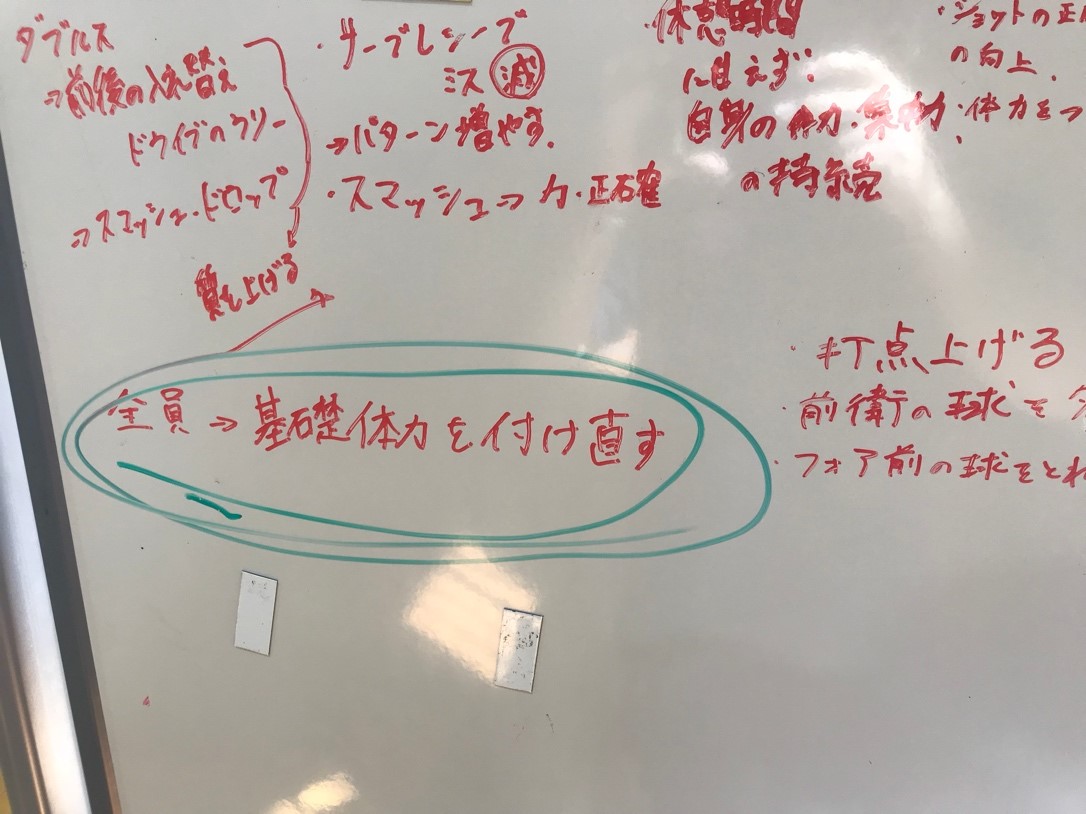 ダブルス
⇒前後の入れ替え
ドライブのクリー
⇒スマッシュ・ドロップ
質を上げる
・サーブレシーブ
ミス 減
→パターン増やす.
・スマッシュ⇒力・正確
・休憩時間
に甘えず.
自身の体力・集中力
の持続
・ショットの正
の向上.
・体力をつ
全員⇒基礎体力を付け直す
・打点上げる
・前衛の球を
・フォア前の球をとれ